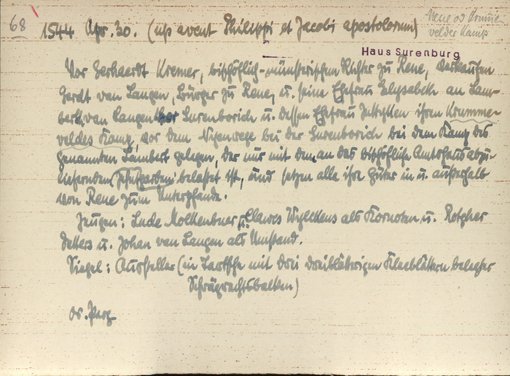 68 1544 Apr. 30. (up avent Philippi et Jacobi apostolorum)
Rene oo Krumme
velder Kamp
Haus Surenburg
Vor Gerhaerdt Kremer, bischöflich-münsterischen Richter zu Rene, verkaufen
Gerdt van Langen, Bürger zu Rene, u. seine Ehefrau Elysabeth an Lam-
bert van Langen tor Surenborich u. dessen Ehefrau Jutkythen ihren Krumme-
veldes Kamp, vor dem bei der Surenborich bei dem Kamp des
genannten Lambert gelegen, der nur mit den an das bischöfliche Amtshaus abzu-
liefernden belastet ist, und setzen alle ihre Güter in u. außerhalb
von Rene zum Unterpfande.
Zeugen: Lude Molkenbuer u. Clawes als Kornoten u. Rotgher
Detters u. Johan van Langen als Umstand.
Siegel: Aussteller (in Tartsche mit drei dreiblätterigen Kleeblättern belegter
Schrägrechtsbalken)
Or. Perg